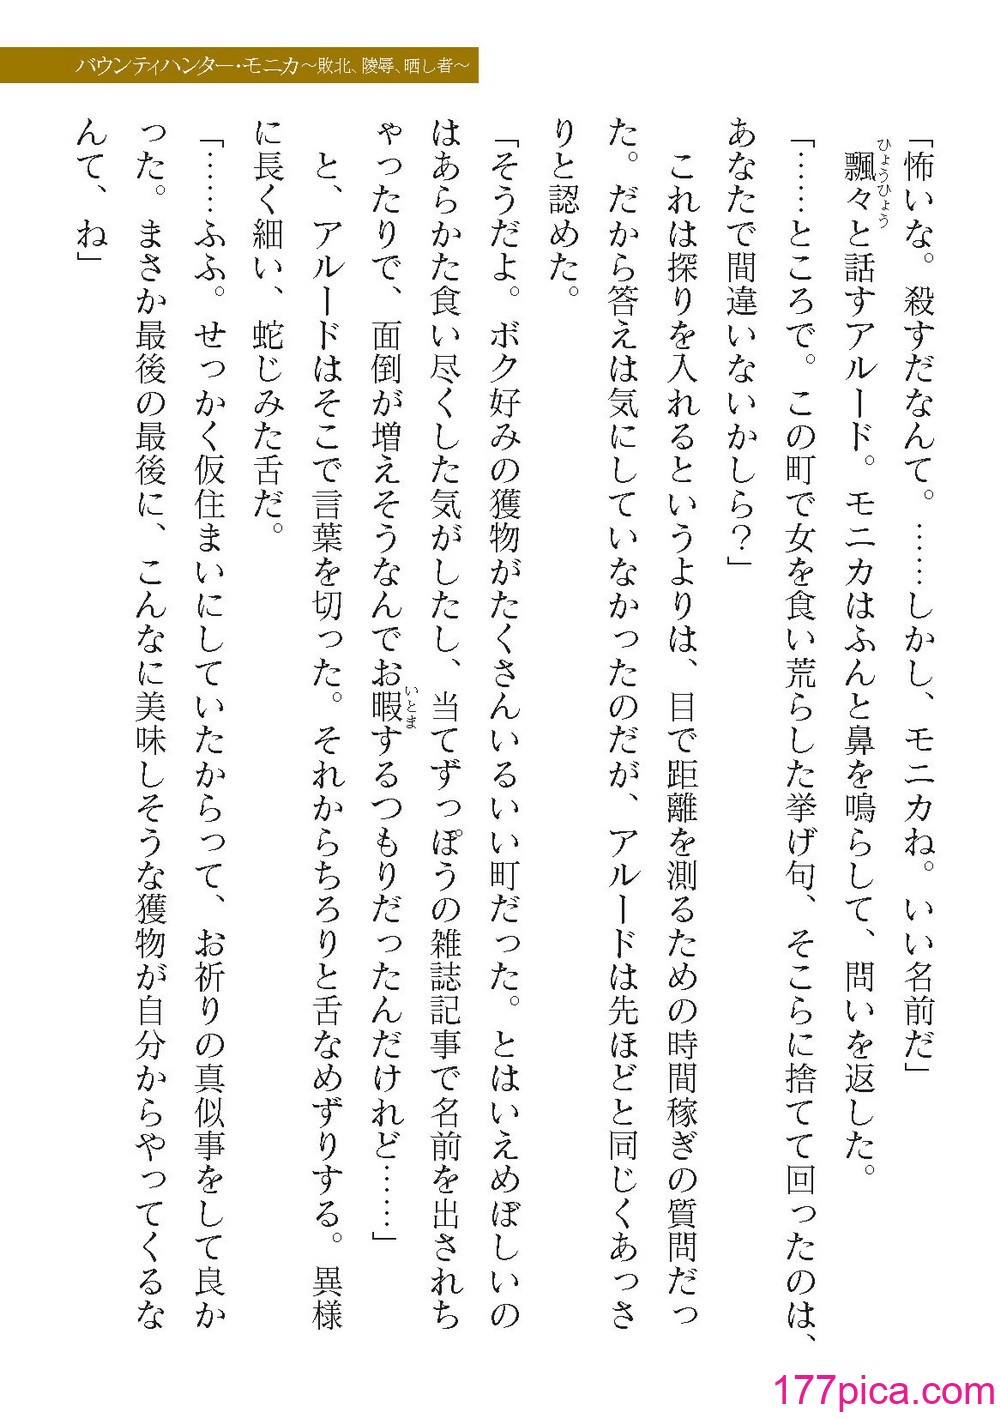 バウンティハンター・モニカ～敗北、陵辱、晒し者～
「怖いな。殺すだなんて。……しかし、モニカね。いい名前だ」
ひょうひょう
　飄々と話すアルード。モニカはふんと鼻を鳴らして、問いを返した。
「……ところで。この町で女を食い荒らした挙げ句、そこらに捨てて回ったのは、
あなたで間違いないかしら？」
　これは探りを入れるというよりは、目で距離を測るための時間稼ぎの質問だっ
た。だから答えは気にしていなかったのだが、アルードは先ほどと同じくあっさ
りと認めた。
「そうだよ。ボク好みの獲物がたくさんいるいい町だった。とはいえめぼしいの
はあらかた食い尽くした気がしたし、当てずっぽうの雑誌記事で名前を出されち
いとま
ゃったりで、面倒が増えそうなんでお暇するつもりだったんだけれど……」
　と、アルードはそこで言葉を切った。それからちろりと舌なめずりする。異様
に長く細い、蛇じみた舌だ。
「……ふふ。せっかく仮住まいにしていたからって、お祈りの真似事をして良か
った。まさか最後の最後に、こんなに美味しそうな獲物が自分からやってくるな
んて、ね」
177pica.com